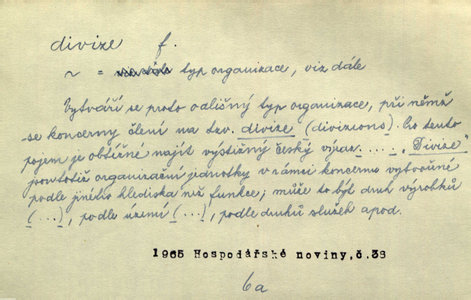 divize f.
~ = typ organizace, viz dále
Vytváří se proto odlišný typ organizace, při němž
se koncerny člení na tzv. divize (divisions). Pro tento
pojem je obtížné najít výstižný český výraz ..... Divize
jsou totiž organizační jednotky v rámci koncernu vytvořené
podle jiného hlediska než funkce; může to být druh výrobků
(...), podle území (...), podle druhů služeb apod.
1965 Hospodářské noviny,č.38
6a